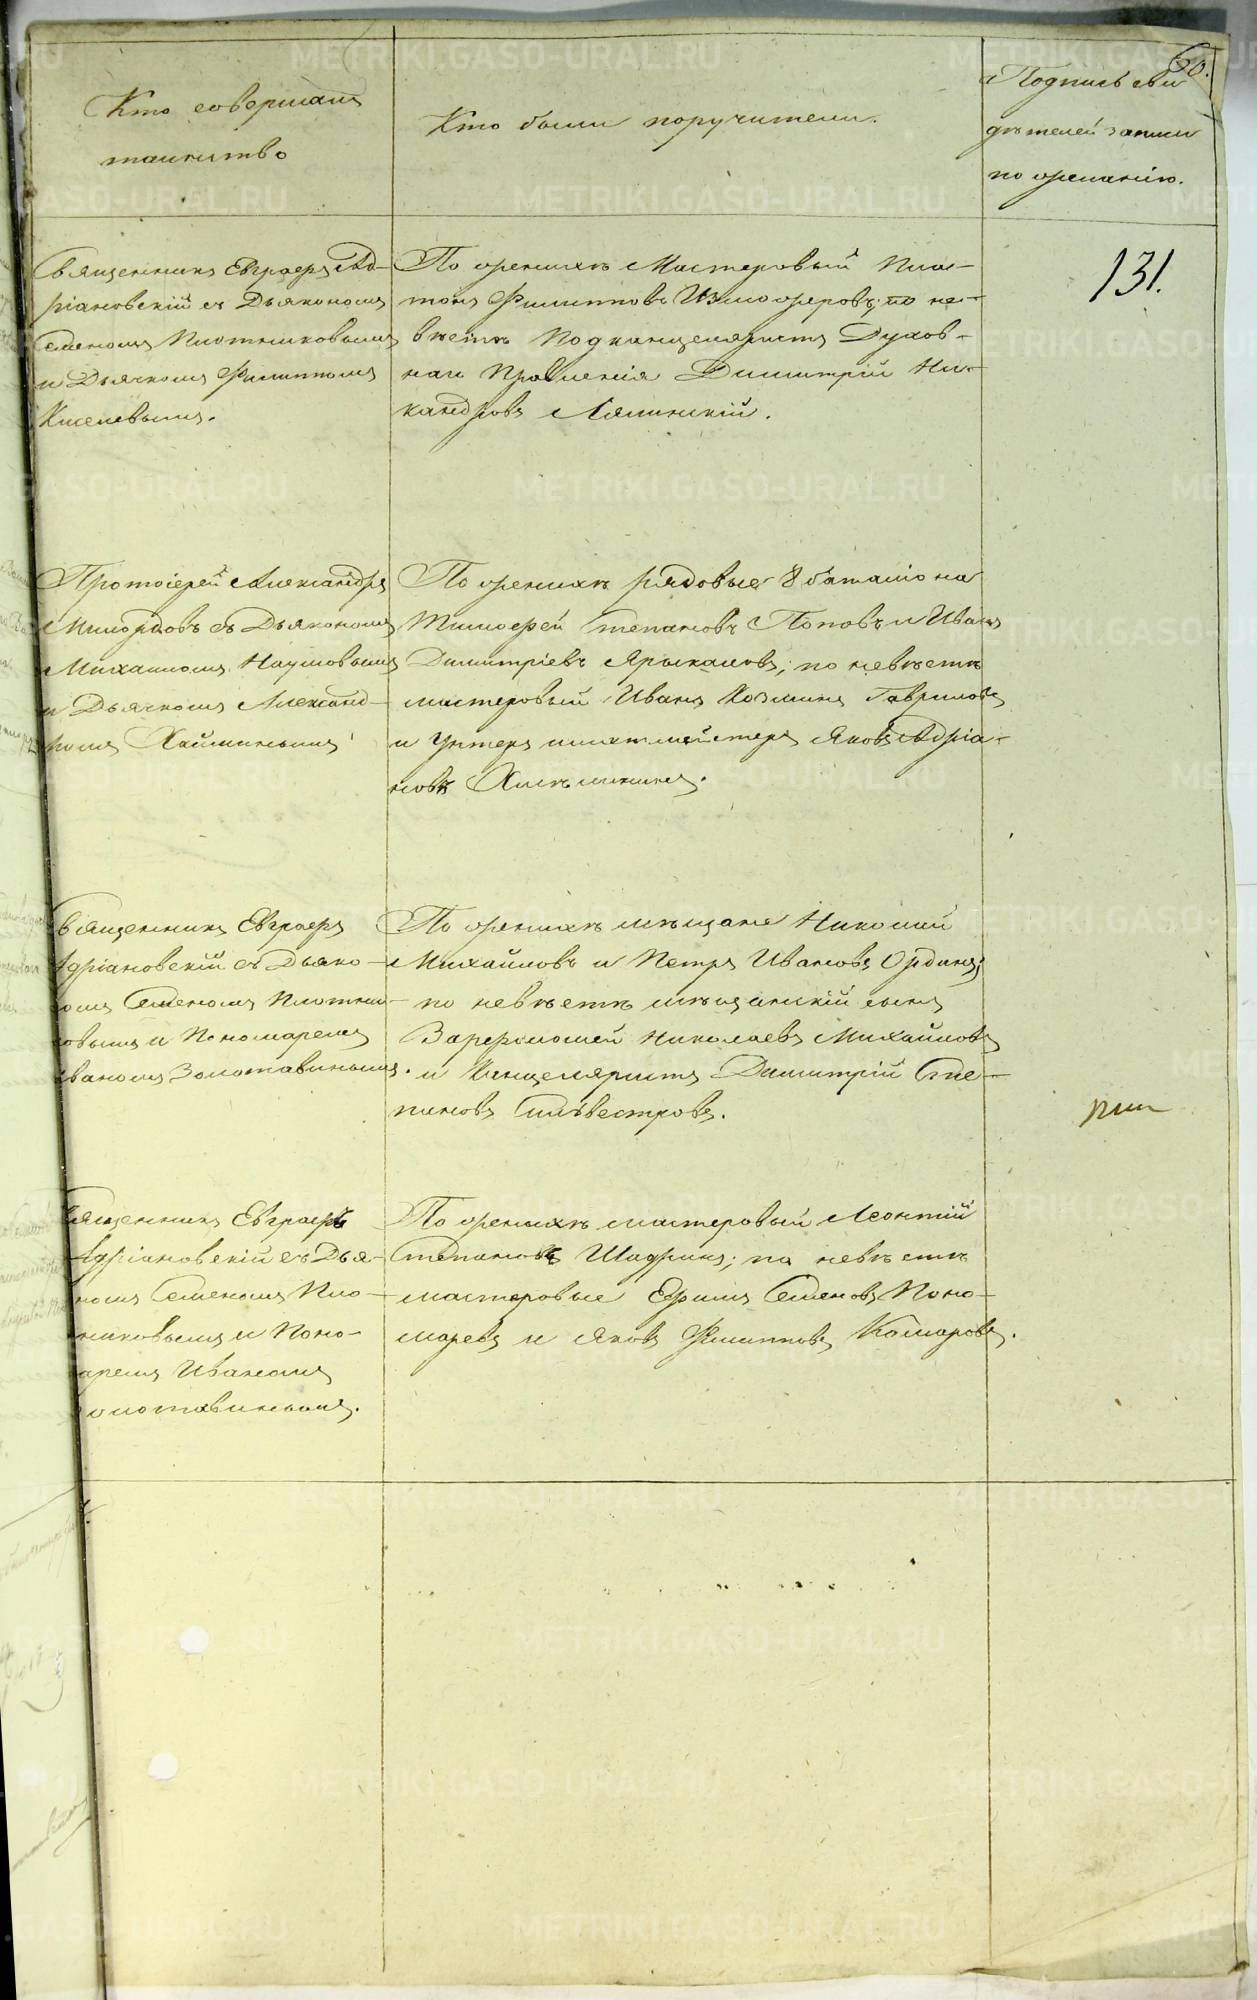 60.
Кто совершалъ
таинство
Кто были поручители.
Подпись сви
дѣтелей записи
по желанію.
131.
Священникъ Евграфъ Ад-
ріановскій съ Дьякономъ
Семеномъ Плотниковымъ
и Дьячкомъ Филиппомъ
Киселевымъ.
По женихѣ Мастеровый Пла-
тонъ Филипповъ Изможеровъ; по не-
вѣстѣ Подканцеляристъ Духов-
наго Правленія Димитрій Ни-
кандровъ Ляпинскій.
Протоіерей Александръ
Милордовъ съ Дьякономъ
Михаиломъ Наумовымъ
и Дьячкомъ Александ-
ромъ Хайминымъ
По женихѣ рядовые 8 баталіона
Тимофей Степановъ Поповъ и Иванъ
Димитріевъ Ярыкаловъ; по невѣстѣ
мастеровый Иванъ Козминъ Гавриловъ
и Унтеръ шихтмейстеръ Яковъ Адріа-
новъ Хмѣлининъ.
Священникъ Евграфъ
Адріановскій съ Дьяко-
номъ Семеномъ Плотни-
ковымъ и Пономаремъ
Иваномъ Золотавинымъ.
По женихѣ мѣщане Николай
Михайловъ и Петръ Ивановъ Ординъ;
по невѣстѣ мѣщанскій сынъ
Варфоломей Николаевъ Михайловъ
и Канцеляристъ Димитрій Сте-
пановъ Сильвестровъ.
Священникъ Евграфъ
Адріановскій съ Дья-
номъ Семеномъ Пло-
никовымъ и Поно-
аремъ Иваномъ
олотавинымъ.
По женихѣ мастеровый Леонтій
Степановъ Шадринъ; по невѣстѣ
мастеровые Ефимъ Семеновъ Поно-
маревъ и Яковъ Филипповъ Комаровъ.